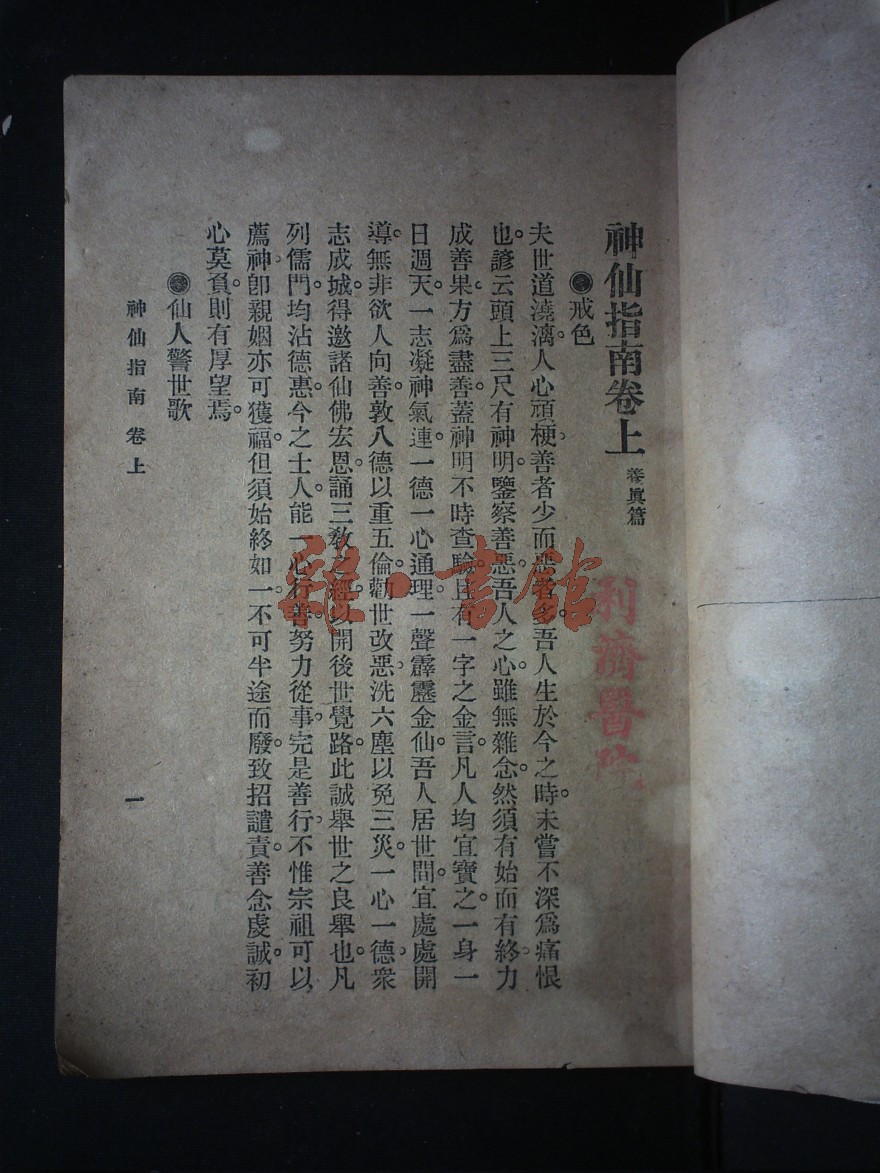 神仙指南卷上 養眞篇
戒色
夫世道澆漓。人心頑梗。善者少而惡者多。吾人生於今之時。未嘗不深爲痛恨
也。諺云頭上三尺有神明。鑒察善惡。吾人之心。雖無雜念。然須有始而有終。力
成善果。方爲盡善。蓋神明不時查驗。且有一字之金言。凡人均宜寶之。一身一
日週天。一志凝神氣。連一德一心通理。一聲霹靂金仙。吾人居世間。宜處處開
導。無非欲人向善。敦八德以重五倫。勸世改惡。洗六塵以免三災。一心一德。衆
志成城。得邀諸仙佛宏恩。誦三敎之經。以開後世覺路。此誠舉世之良舉也。凡
列儒門。均沾德惠。今之士人。能一心行善。努力從事。完是善行。不惟宗祖可以
薦神。卽親姻亦可獲福。但須始終如一。不可半途而廢。致招譴責。善念虔誠。初
心莫負。則有厚望焉。
仙人警世歌
神仙指南 卷上
一
利濟醫院
雜·書館